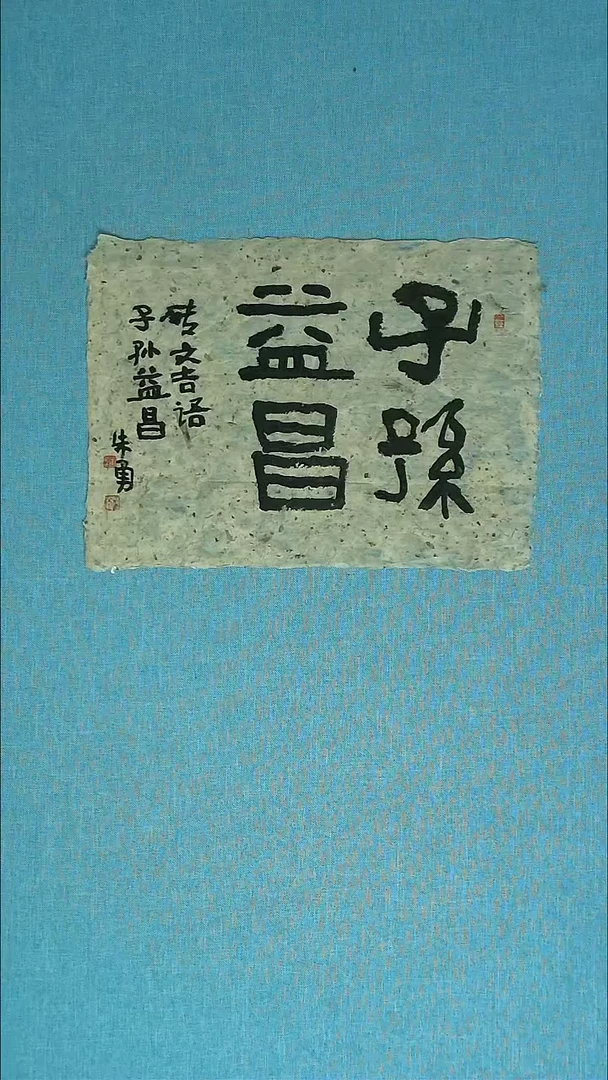 子孫
益昌
砖文吉语
子孙益昌
朱勇